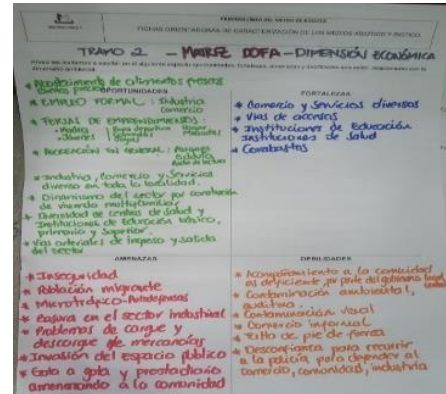 PRIMERA LÍNEA DEL METRO DE BOGOTÁ
FICHAS ORIENTADORAS DE CARACTERIZACIÓN DE LOS MEDIOS ABIÓTICO Y BIÓTICO
TRAMO 2 - MATRIZ DOFA - DIMENSIÓN ECONÓMICA
* Abastecimiento de alimentos frescos
buenos precios
OPORTUNIDADES
* EMPLEO FORMAL: Industria
Comercio
* FERIAS DE EMPRENDIMIENTOS:
Ropa deportiva
* RECREACIÓN EN GENERAL: Parques
* Industria, Comercio y Servicios
diverso en toda la localidad.
* Dinamismo del sector por construcción
de vivienda multifamiliar
* Diversidad de centros de salud y
Instituciones de Educación básico,
primario y Superior.
* Vías arteriales de Ingreso y salida
del sector
FORTALEZAS
* Comercio y Servicios diversos
* Vías de accesos
* Instituciones de Educación
Instituciones de Salud
* Corabastos
AMENAZAS
* Inseguridad
* Población migrante
* Microtráfico
* Basura en el sector industrial
* Problemas de cargue y
descargue de mercancías
* Invasión del espacio público
* Gota a gota y prestadiario
amenazando a la comunidad
DEBILIDADES
* Acompañamiento a la comunidad
es deficiente por parte del gobierno
* Contaminación ambiental,
auditiva
* Contaminación visual
* Comercio informal
* Falta de pie de fuerza
* Desconfianza para recurrir
a la policía para defender al
comercio, comunidad, industria